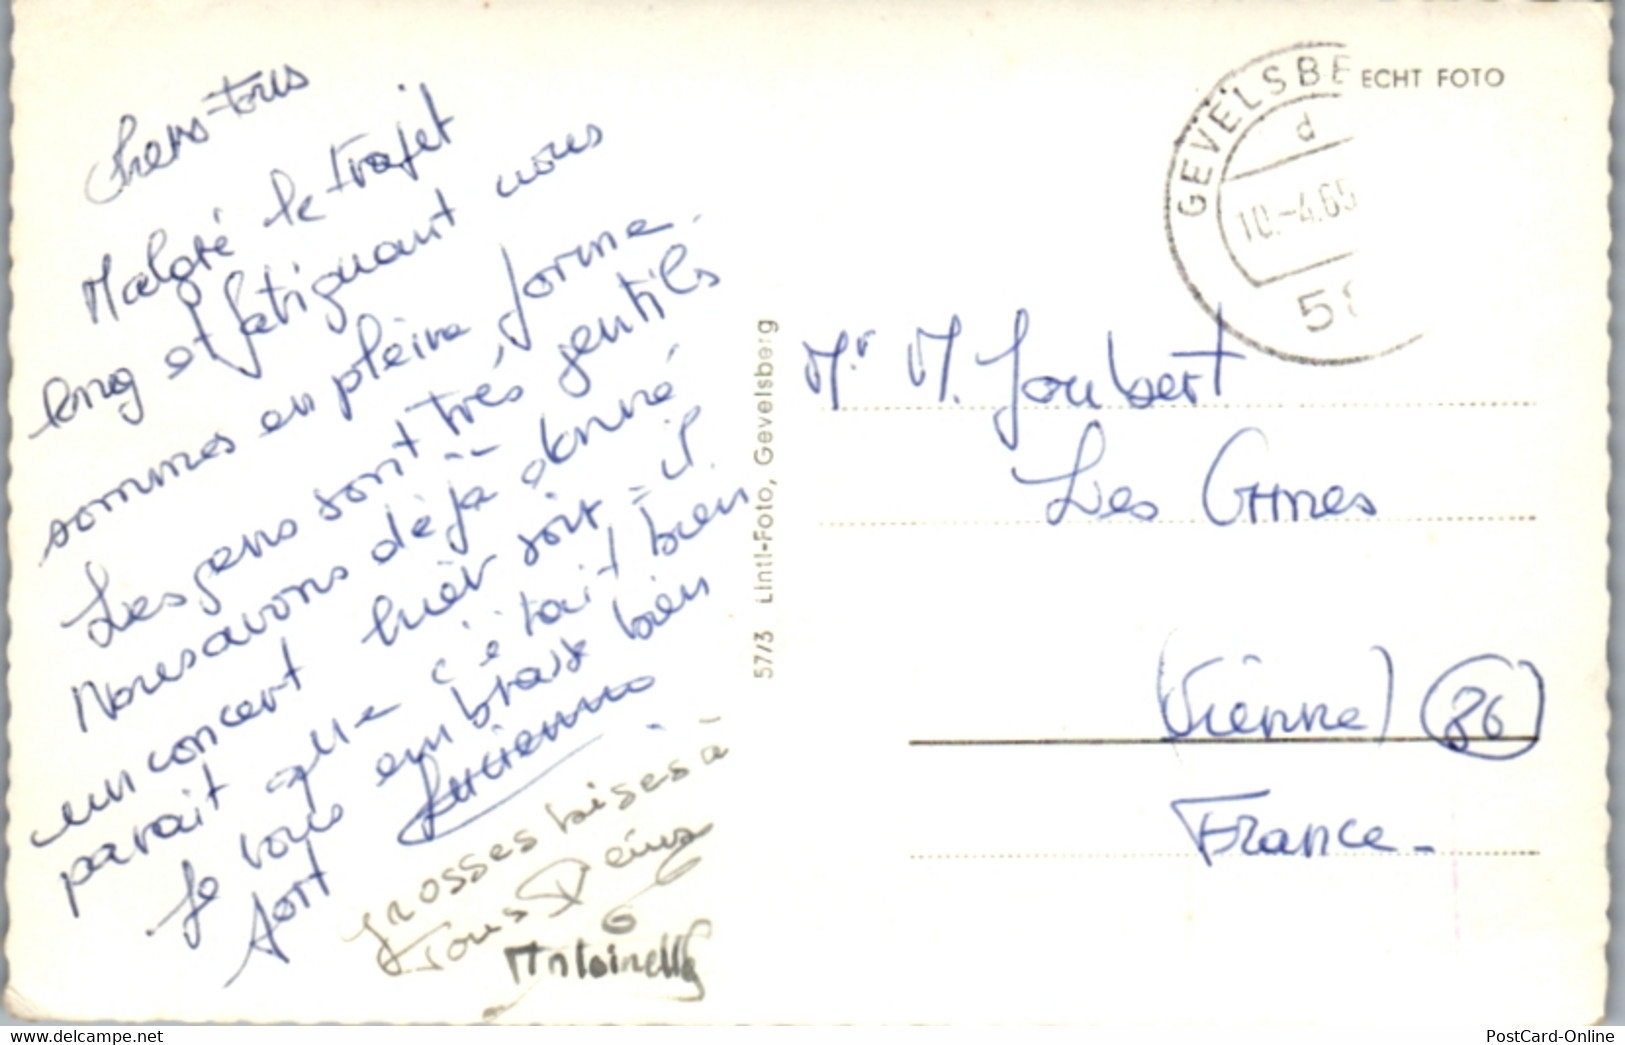 Chers tous
Malgré le trajet
long et fatiguant nous
sommes en pleine forme.
Les gens sont très gentils
Nous avons déjà donné
un concert hièr soir il
parait que c'était bien
Je vous embrasse bien
fort Lucienne
grosses bises à
tous
Antoinette
57/3 Lintl-Foto, Gevelsberg
ECHT FOTO
GEVELSBE
d
10.-4.65
58
Mr M. Joubert
Les Ormes
(Vienne) 86
France.
www.delcampe.net
PostCard-Online